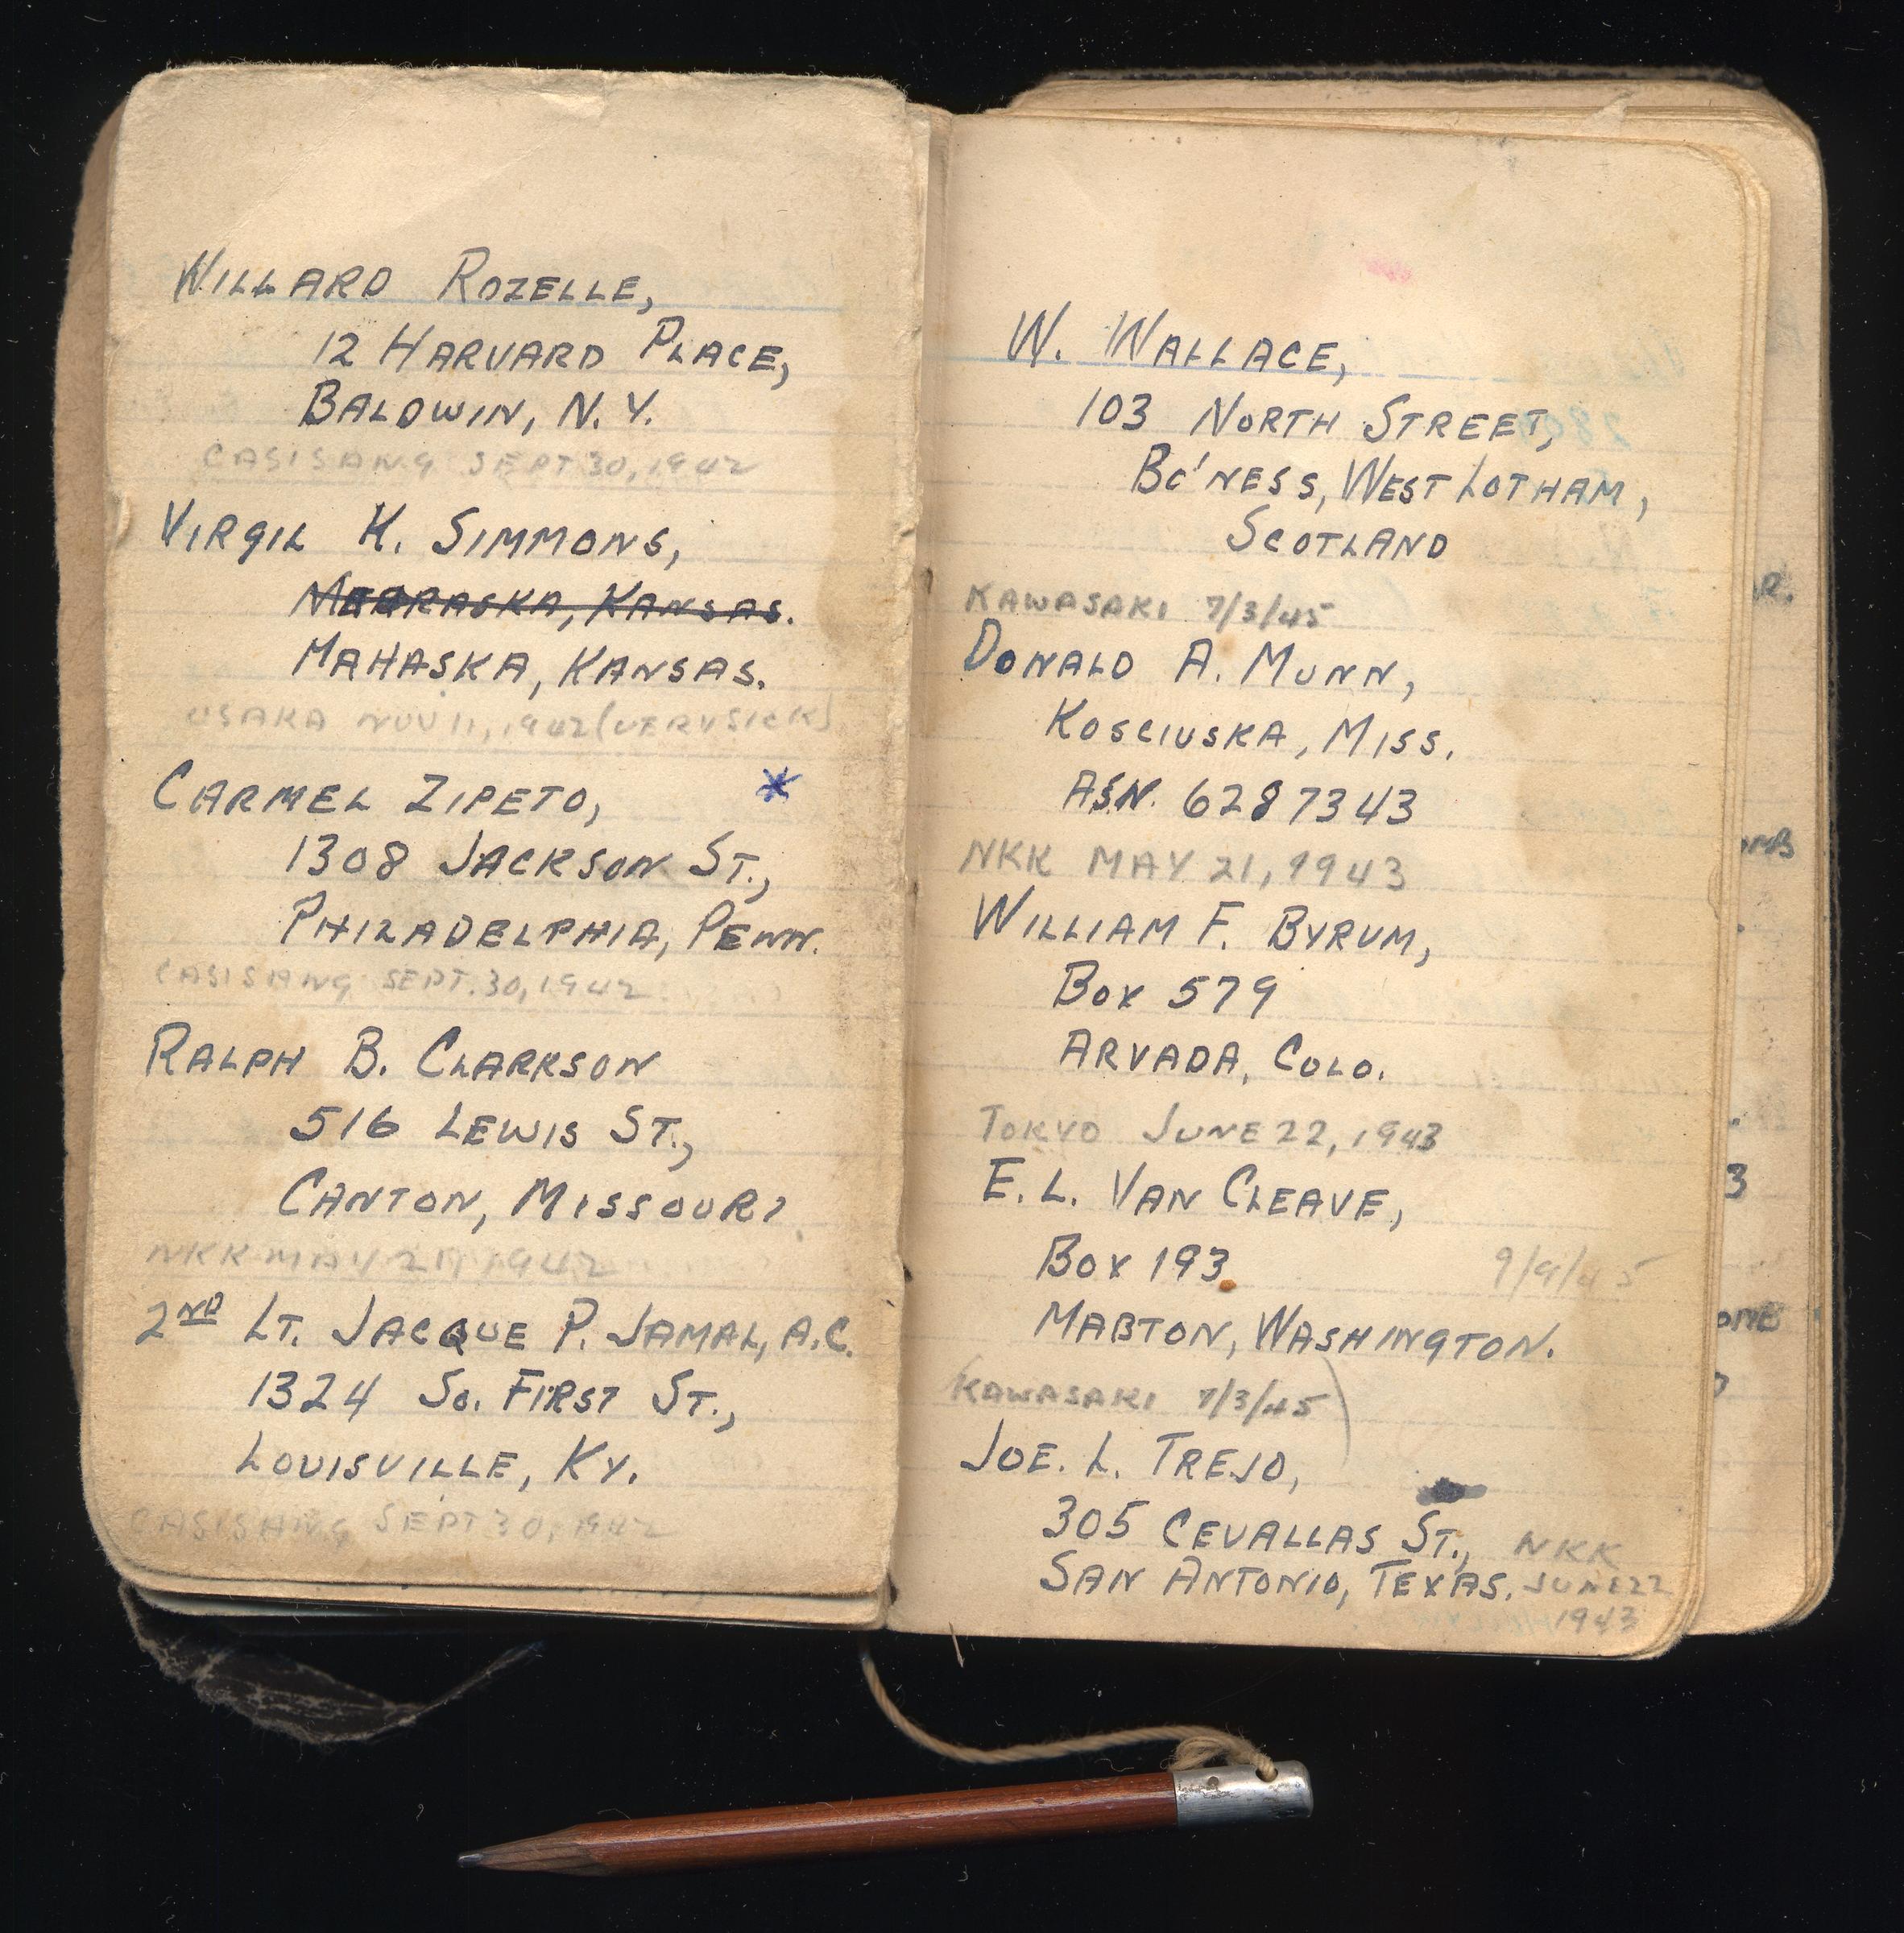 WILLARD ROZELLE,
12 HARVARD PLACE,
BALDWIN, N.Y.
CASISANG SEPT 30, 1942
VIRGIL K. SIMMONS,
KANSAS.
MAHASKA, KANSAS.
OSAKA NOV 11, 1942 (VERY SICK)
CARMEL ZIPETO, *
1308 JACKSON ST.,
PHILADELPHIA, PENN.
CASISANG SEPT. 30, 1942
RALPH B. CLARKSON
516 LEWIS ST.,
CANTON, MISSOURI
NKK MAY 21, 1942
2ND LT. JACQUE P. JAMAL, A.C.
1324 SO. FIRST ST.,
LOUISVILLE, KY.
CASISANG SEPT 30, 1942
W. WALLACE,
103 NORTH STREET,
BO'NESS, WEST LOTHAM,
SCOTLAND
KAWASAKI 7/3/45
DONALD A. MUNN,
KOSCIUSKA, MISS.
ASN. 6287343
NKK MAY 21, 1943
WILLIAM F. BYRUM,
BOX 579
ARVADA, COLO.
TOKYO JUNE 22, 1943
E. L. VAN CLEAVE,
BOX 193 9/9/45
MABTON, WASHINGTON.
KAWASAKI 7/3/45
JOE. L. TREJO,
305 CEVALLAS ST., NKK
SAN ANTONIO, TEXAS. JUNE 22
1943